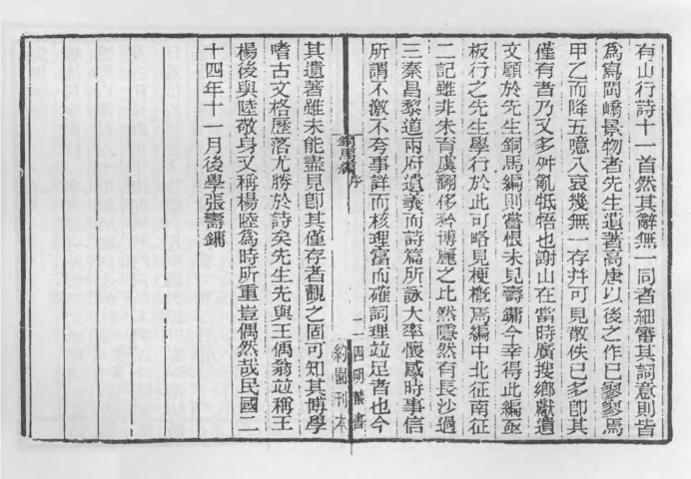 有山行詩十一首然其辭無一同者細審其詞意則皆
爲寫閩嶠景物者先生遺著高唐以後之作已寥寥焉
甲乙而降五噫八哀幾無一存幷可見散佚已多卽其
僅有者乃又多舛亂牴牾也謝山在當時廣搜鄉獻遺
文顧於先生銅馬編則嘗恨未見壽鏞今幸得此編亟
板行之先生學行於此可略見梗槪焉編中北征南征
二記雖非朱育虞翻侈矜博麗之比然隱然有長沙過
三秦昌黎道兩府遺義而詩篇所詠大率懷感時事信
所謂不激不夸事詳而核理富而確詞理竝足者也今
銅馬編 序
二 四明叢書
約園刊本
其遺著雖未能盡見卽其僅存者觀之固可知其博學
嗜古文格歷落尤勝於詩矣先生先與王偶翁竝稱王
楊後與陸敬身又稱楊陸爲時所重豈偶然哉民國二
十四年十一月後學張壽鏞